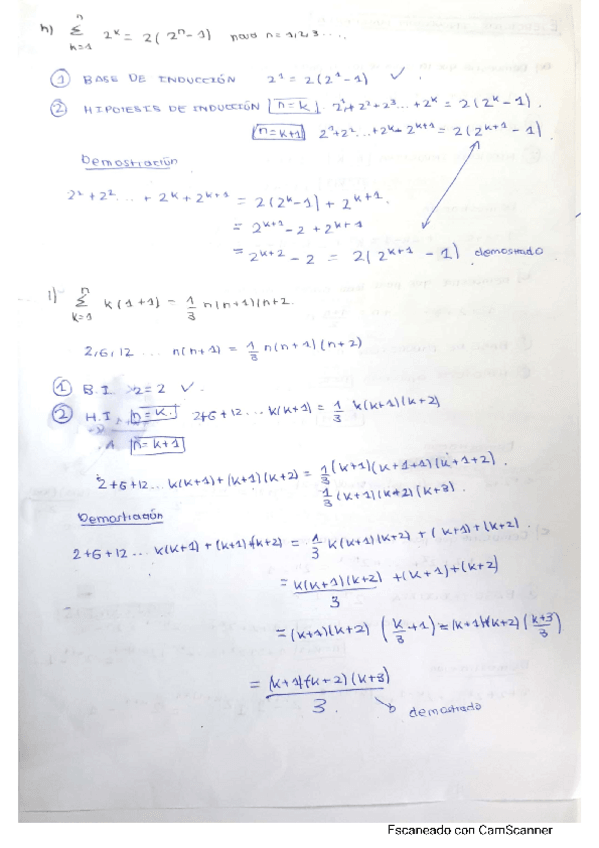 h) n Σ k=1 2^k = 2(2^n - 1) para n = 1,2,3 ....
① BASE DE INDUCCIÓN 2^1 = 2(2^1 - 1) ✓.
② HIPOTESIS DE INDUCCIÓN n=k. 2^1+2^2+2^3...+2^k = 2(2^k - 1).
n=k+1 2^1+2^2...+2^k+2^{k+1} = 2(2^{k+1} - 1)
Demostración
2^1+2^2... + 2^k + 2^{k+1} = 2(2^k - 1) + 2^{k+1}.
= 2^{k+1} - 2 + 2^{k+1}
= 2^{k+2} - 2 = 2(2^{k+1} - 1) demostrado
i) n Σ k=1 k(1+1) = 1/3 n(n+1)(n+2.
2,6,12 ... n(n+1) = 1/3 n(n+1)(n+2)
① B.I. 2=2 ✓.
② H.I n=k. 2+6+12...k(k+1) = 1/3 k(k+1)(k+2)
n=k+1
2+6+12...k(k+1)+(k+1)(k+2) = 1/3(k+1)(k+1+1)(k+1+2).
1/3(k+1)(k+2)(k+3).
Demostración
2+6+12... k(k+1)+(k+1)+(k+2) = 1/3 k(k+1)(k+2) + (k+1)+(k+2).
= k(k+1)(k+2)/3 +(k+1)+(k+2)
= (k+1)(k+2) (k/3 +1) = (k+1)(k+2) (k+3/3)
= (k+1)(k+2)(k+3)/3.
demostrado
Escaneado con CamScanner